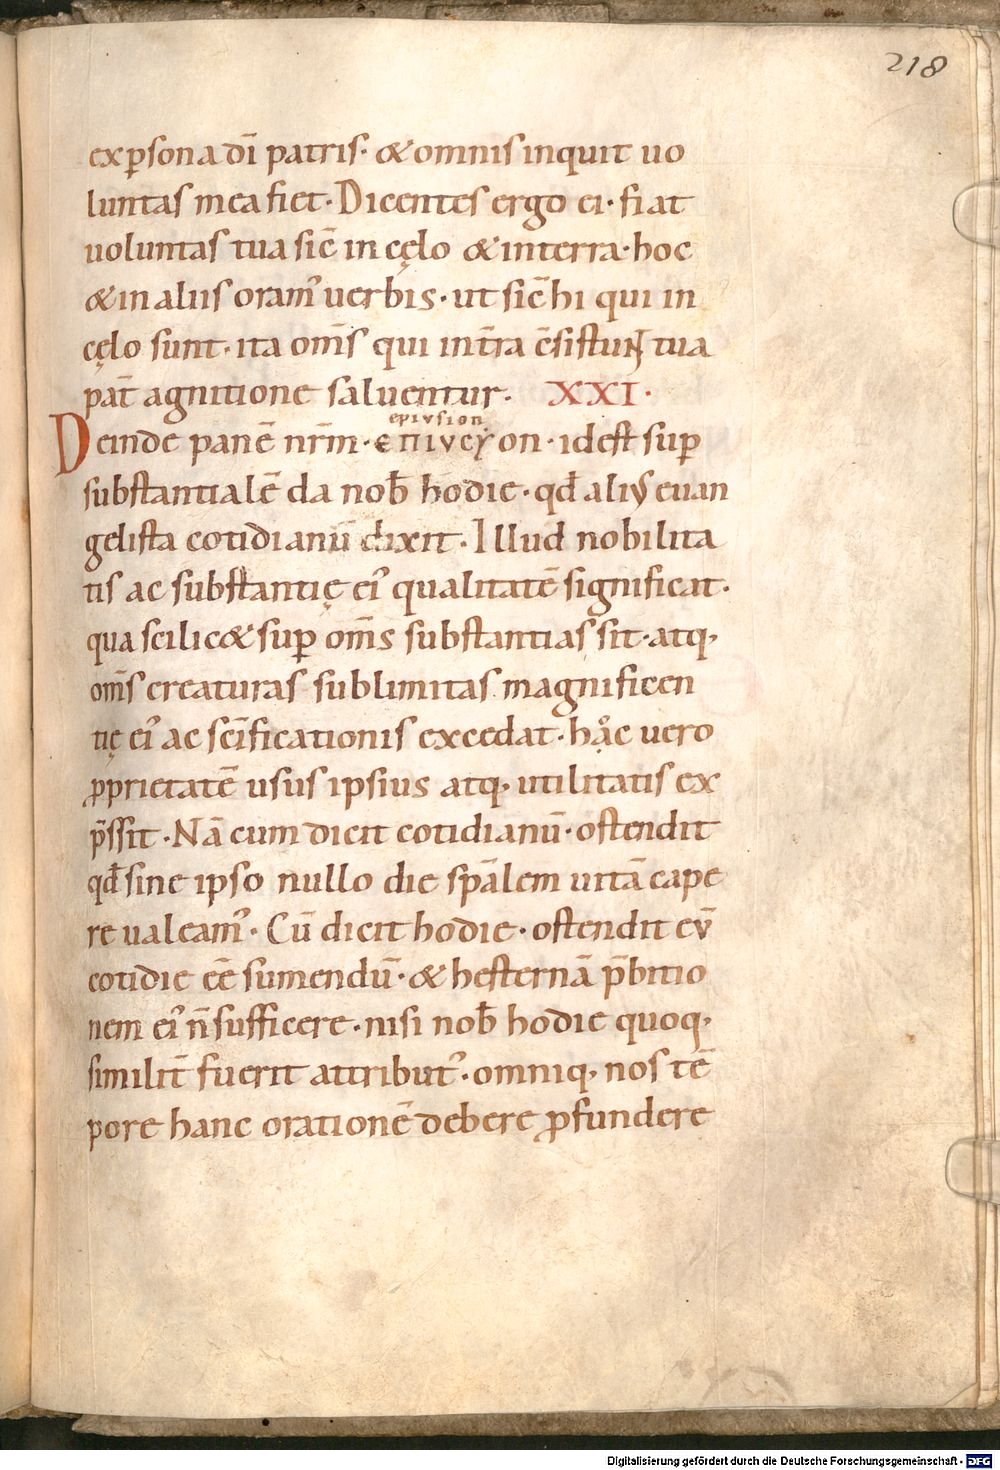 218
ex ꝑsona dī patris· & omnis inquit uo
luntas mea fiet· Dicentes ergo ei· fiat
uoluntas tua sic̄ in cęlo & in terra· hoc
& in aliis oram᾿ uerbis· ut sic̄ hi qui in
cęlo sunt· ita om̄s qui in tr̄a c̄sistunt tua
pat̄ agnitione saluentur· XXI·
epiusion
Deinde panē nr̄m· ΕΠΙΥCΥον· id est suꝑ
substantialē da nob̄ hodie· qd̄ aliꝰ euan
gelista cotidianū dixit· Illud nobilita
tis ac substantię ei᾿ qualitatē significat·
qua scilic& suꝑ om̄s substantias sit· atq·
om̄s creaturas sublimitas magnificen
tię ei᾿ ac sc̄ificationis excedat· håc uero
ꝓprietatē usus ipsius atq· utilitatis ex
p̄ssit· Nā cum dicit cotidianū· ostendit
qd̄ sine ipso nullo die sp̄alem uitā cape
re ualeam᾿· Cū dicit hodie· ostendit eū
cotidie eē sumendū· & hesternā p̄bitio
nem ei᾿ n̄ sufficere· nisi nob̄ hodie quoq·
similit̄ fuerit attribut᾿· omniq· nos tē
pore hanc orationē debere ꝓfundere
Digitalisierung gefördert durch die Deutsche Forschungsgemeinschaft - DFG